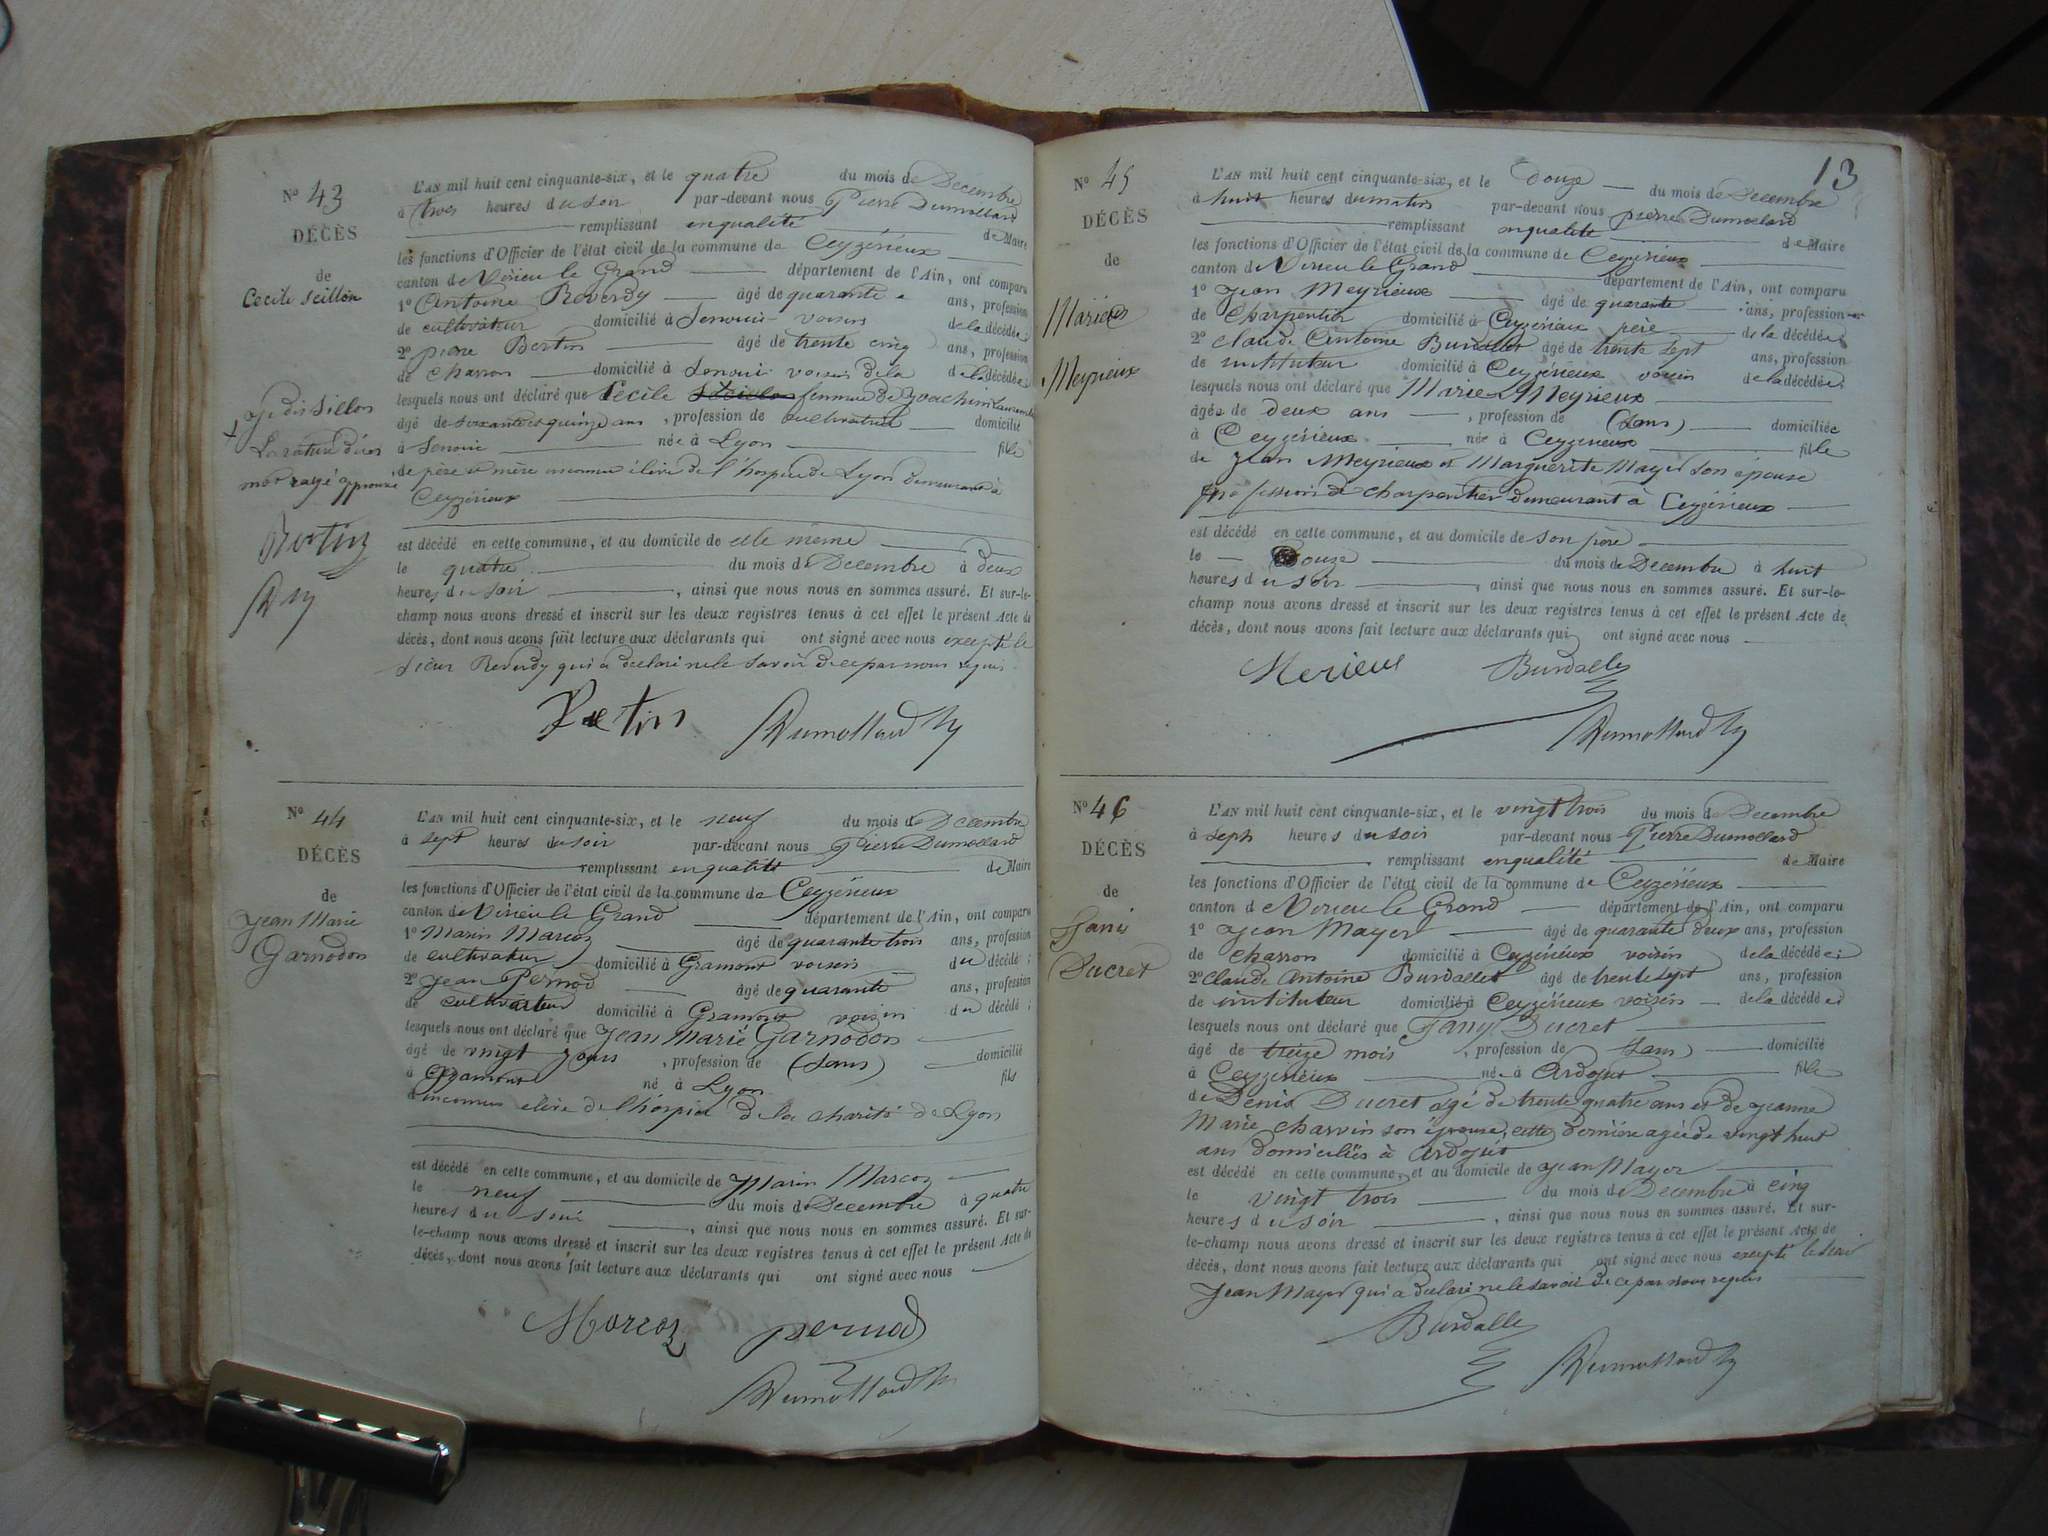 N° 43
DÉCÈS
de
Cecile Seillon
Je dis Sillon
La rature d'un
mot rayé approuvé
Bertin
L'AN mil huit cent cinquante-six, et le quatre du mois de Décembre
à trois heures du soir par-devant nous Pierre Dumollard
remplissant en qualité de Maire
les fonctions d'Officier de l'état civil de la commune de Ceyzérieux
canton de Virieu le Grand département de l'Ain, ont comparu
1° Antoine Reverdy âgé de quarante ans, profession
de cultivateur domicilié à Senouir voisin de la décédée ;
2° pierre Bertin âgé de trente cinq ans, profession
de charron domicilié à Senouir voisin de la de la décédée
lesquels nous ont déclaré que Cécile femme de Joachim
âgé de soixante et quinze ans, profession de cultivatrice domicilié
à Senouir née à Lyon fille
de père et mère inconnue élève de l'hospice de Lyon demeurant à
Ceyzérieux
est décédé en cette commune, et au domicile de elle même
le quatre du mois de Décembre à deux
heures du soir, ainsi que nous nous en sommes assuré. Et sur-le-
champ nous avons dressé et inscrit sur les deux registres tenus à cet effet le présent Acte de
décès, dont nous avons fait lecture aux déclarants qui ont signé avec nous excepté le
sieur Reverdy qui a déclaré ne le savoir de ce par nous requis
Bertin Dumollard
N° 44
DÉCÈS
de
Jean Marie
Garnodon
L'AN mil huit cent cinquante-six, et le neuf du mois de Décembre
à sept heures du soir par-devant nous Pierre Dumollard
remplissant en qualité de Maire
les fonctions d'Officier de l'état civil de la commune de Ceyzérieux
canton de Virieu le Grand département de l'Ain, ont comparu
1° Marin Marcoz âgé de quarante trois ans, profession
de cultivateur domicilié à Gramont voisin du décédé ;
2° Jean Pernod âgé de quarante ans, profession
de cultivateur domicilié à Gramont voisin du décédé ;
lesquels nous ont déclaré que Jean Marie Garnodon
âgé de vingt jours, profession de (Sans) domicilié
à Gramont né à Lyon fils
d'inconnus elève de l'hospice de la charité de Lyon
est décédé en cette commune, et au domicile de Marin Marcoz
le neuf du mois de Décembre à quatre
heures du soir, ainsi que nous nous en sommes assuré. Et sur-
le-champ nous avons dressé et inscrit sur les deux registres tenus à cet effet le présent Acte de
décès, dont nous avons fait lecture aux déclarants qui ont signé avec nous
Morcoz pernod
Dumollard
13
N° 45
DÉCÈS
de
Marie
Meyrieux
L'AN mil huit cent cinquante-six, et le douze du mois de Décembre
à huit heures du matin par-devant nous pierre Dumollard
remplissant en qualité de Maire
les fonctions d'Officier de l'état civil de la commune de Ceyzérieux
canton de Virieu le Grand département de l'Ain, ont comparu
1° Jean Meyrieux âgé de quarante ans, profession
de Charpentier domicilié à Ceyzérieux père de la décédée ;
2° Claude Antoine Burdallet âgé de trente sept ans, profession
de instituteur domicilié à Ceyzérieux voisin de la décédée ;
lesquels nous ont déclaré que Marie Meyrieux
âgée de deux ans, profession de (Sans) domiciliée
à Ceyzérieux née à Ceyzerieux fille
de Jean Meyrieux et Marguerite Mayer son épouse
profession de charpentier demeurant à Ceyzérieux
est décédé en cette commune, et au domicile de son père
le Douze du mois de Décembre à huit
heures du soir, ainsi que nous nous en sommes assuré. Et sur-le-
champ nous avons dressé et inscrit sur les deux registres tenus à cet effet le présent Acte de
décès, dont nous avons fait lecture aux déclarants qui ont signé avec nous
Merieux Burdallet
Dumollard
N° 46
DÉCÈS
de
Fani
Ducret
L'AN mil huit cent cinquante-six, et le vingt trois du mois de Décembre
à sept heures du soir par-devant nous Pierre Dumollard
remplissant en qualité de Maire
les fonctions d'Officier de l'état civil de la commune de Ceyzérieux
canton de Virieu le Grand département de l'Ain, ont comparu
1° Jean Mayer âgé de quarante deux ans, profession
de charron domicilié à Ceyzérieux voisin de la décédée ;
2° Claude Antoine Burdallet âgé de trente sept ans, profession
de instituteur domicilié à Ceyzérieux voisin de la décédée ;
lesquels nous ont déclaré que Fany Ducret
âgé de treize mois, profession de Sans domicilié
à Ceyzérieux née à Ardosset fille
de Denis Ducret agé de trente quatre ans et de Jeanne
Marie charvin son épouse, cette dernière agée de vingt huit
ans domiciliés à Ardosset
est décédé en cette commune, et au domicile de Jean Mayer
le vingt trois du mois de Décembre à cinq
heures du soir, ainsi que nous nous en sommes assuré. Et sur-
le-champ nous avons dressé et inscrit sur les deux registres tenus à cet effet le présent Acte de
décès, dont nous avons fait lecture aux déclarants qui ont signé avec nous excepté le sieur
Jean Mayer qui a déclaré ne le savoir de ce par nous requis
Burdallet
Dumollard